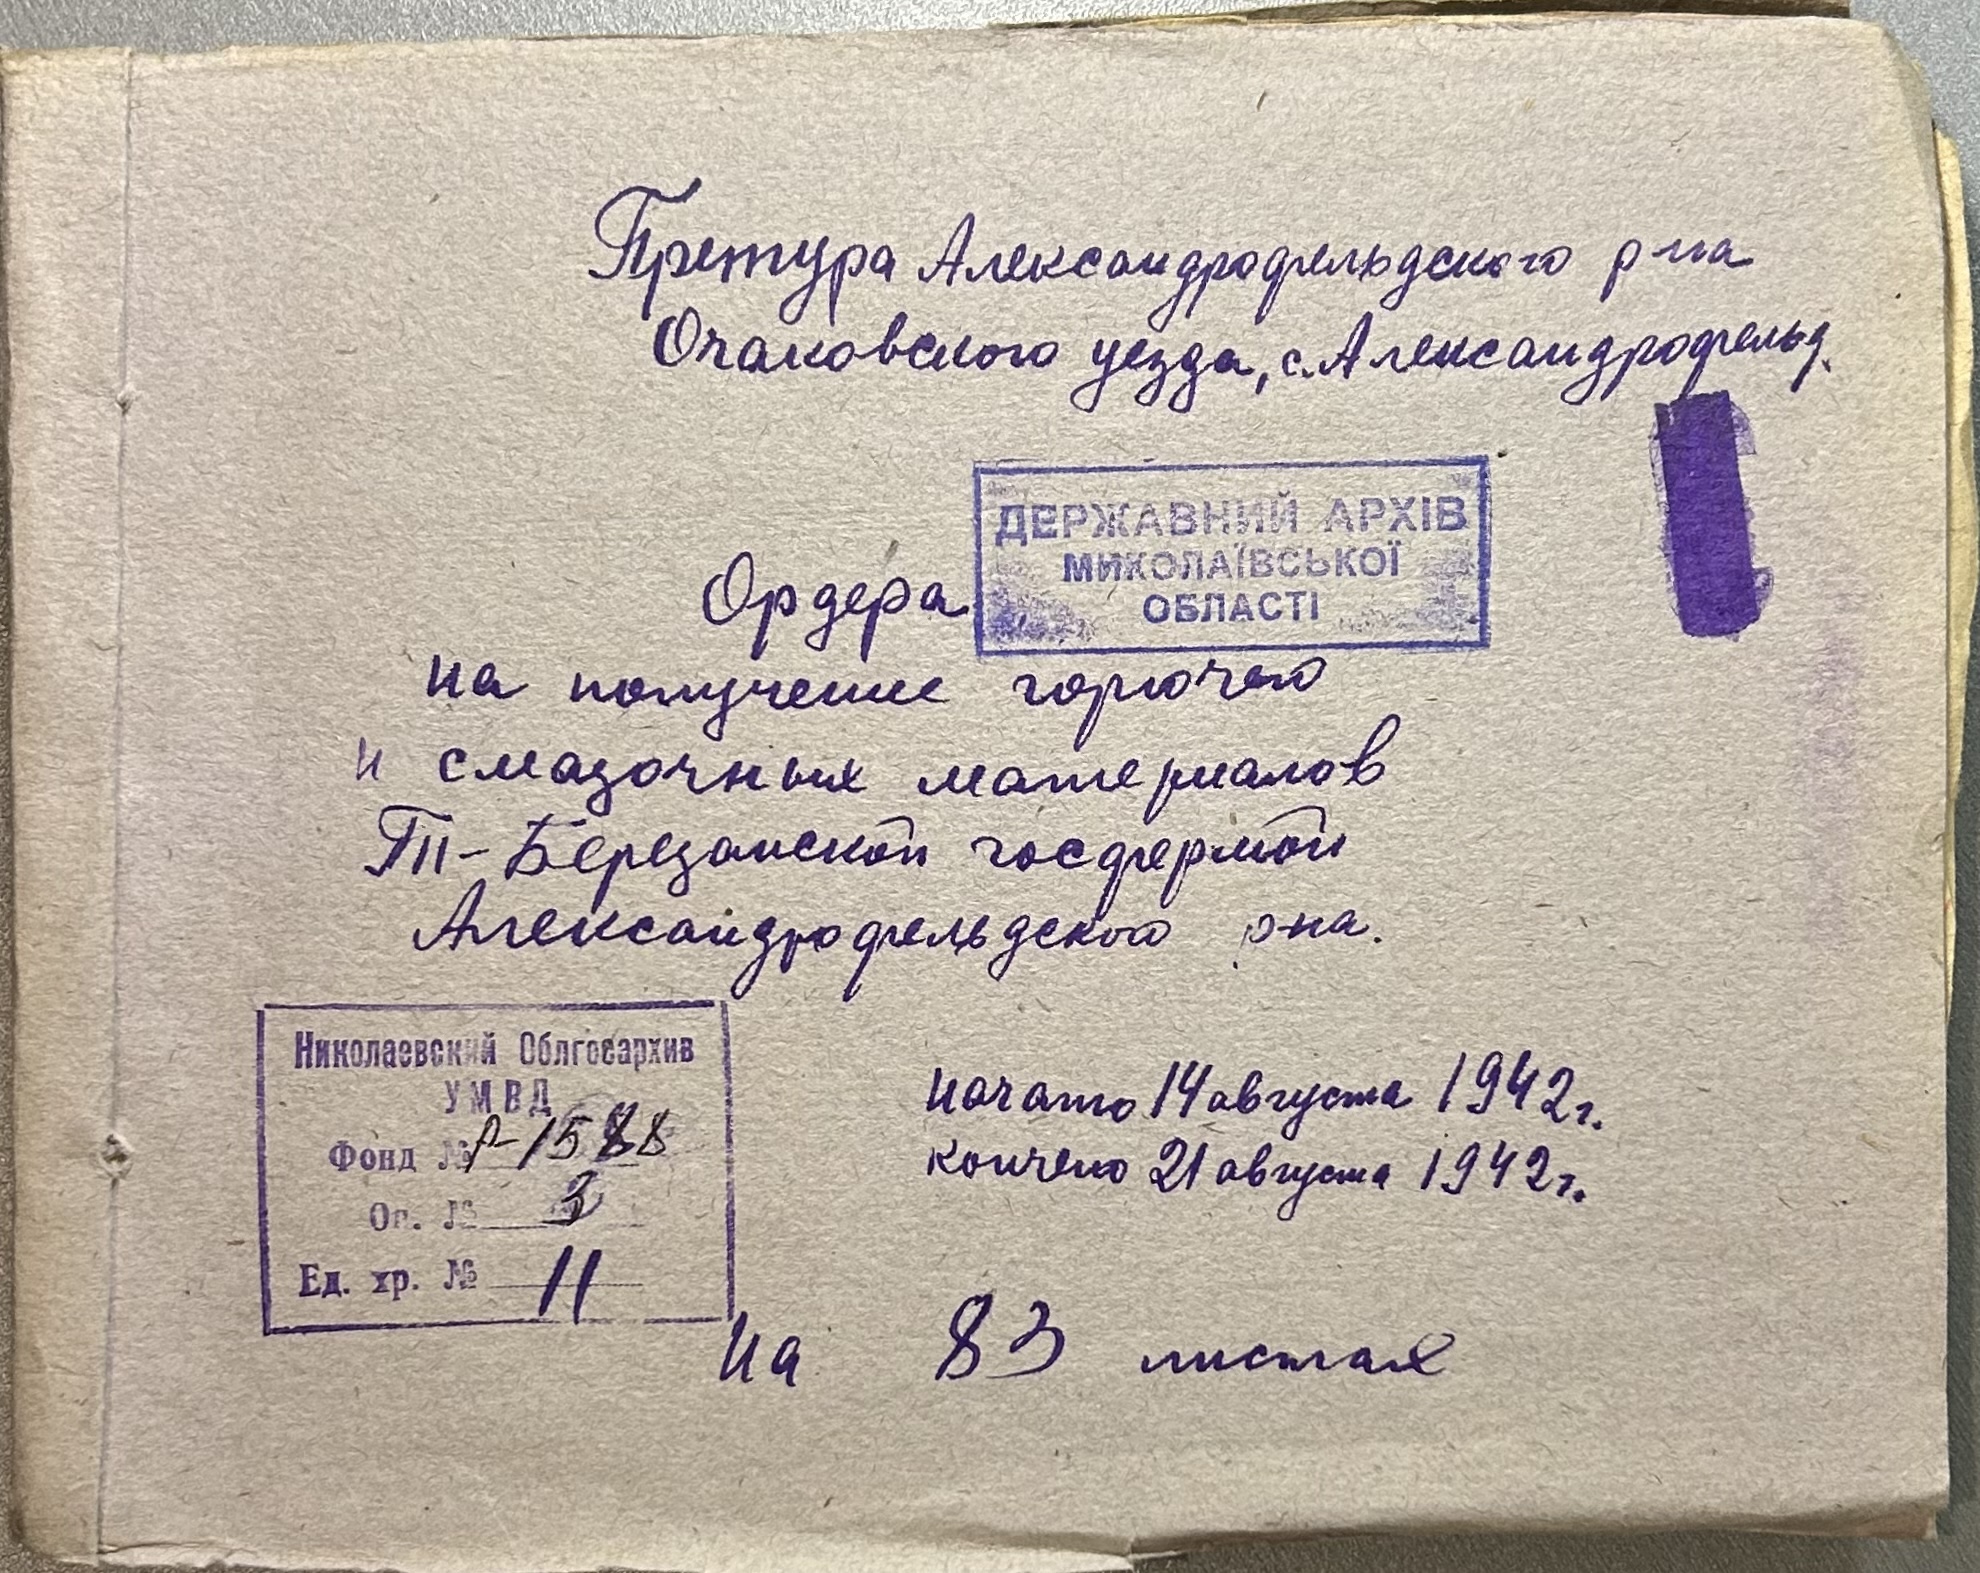 Претура Александрофельдского р-на
Очаковского уезда, с. Александрофельд.
ДЕРЖАВНИЙ АРХІВ
МИКОЛАЇВСЬКОЇ
ОБЛАСТІ
Ордера
на получение горючего
и смазочных материалов
Тп-Березанской госфермой
Александрофельдского р-на.
Николаевский Облгосархив
УМВД
Фонд № Р-1588
Оп. № 3
Ед. хр. № 11
начато 14 августа 1942 г.
кончено 21 августа 1942 г.
на 83 листах